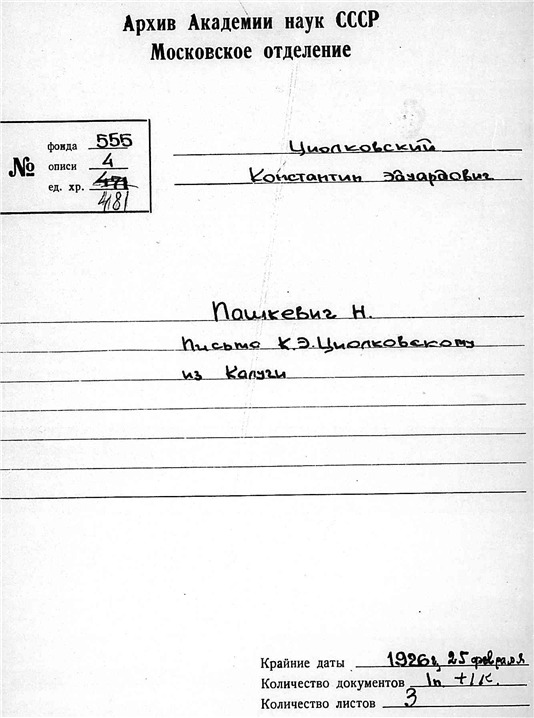 Архив Академии наук СССР
Московское отделение
№
фонда 555
описи 4
ед. хр. 471
481
Циолковский
Константин Эдуардович
Пашкевич Н.
Письмо К.Э.Циолковскому
из Калуги
Крайние даты 1926г, 25 февраля
Количество документов 1п +1к.
Количество листов 3